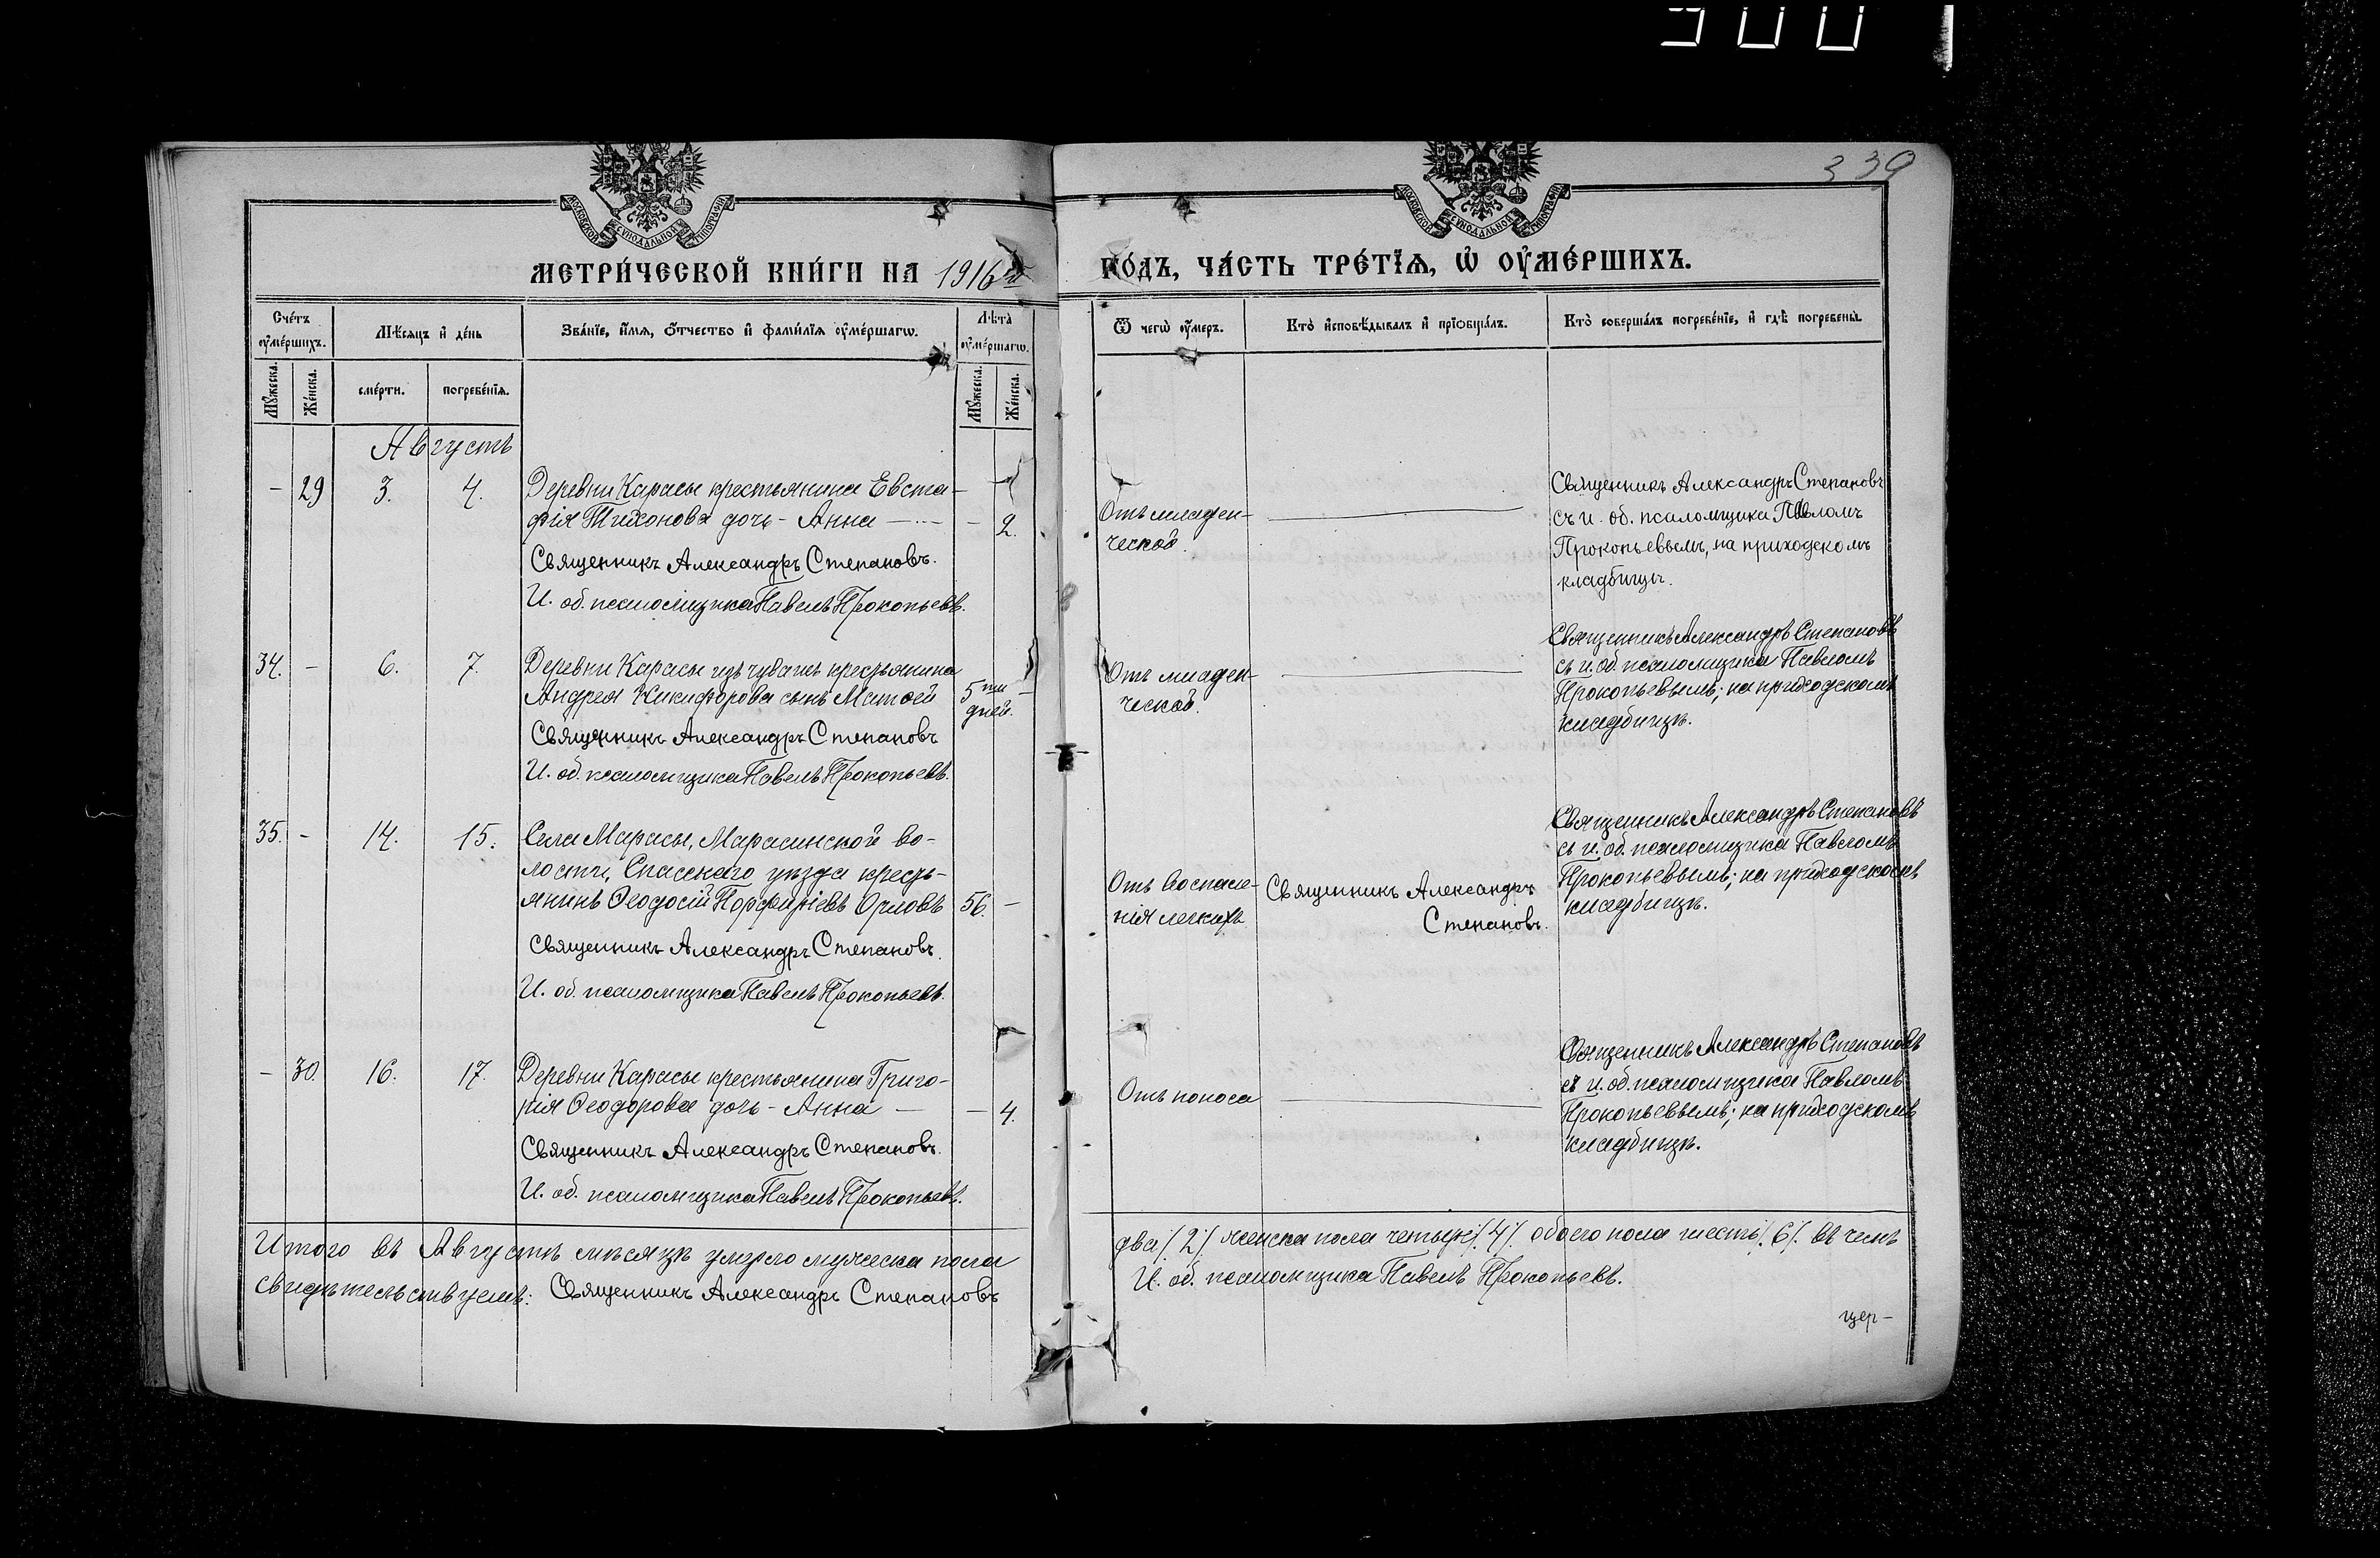 300
339
МОСКОВСКОЙ СѴНОДАЛЬНОЙ ТИПОГРАФІИ
МОСКОВСКОЙ СѴНОДАЛЬНОЙ ТИПОГРАФІИ
МЕТРИ́ЧЕСКОЙ КНИ́ГИ НА 1916й
ГО́ДЪ, ЧА́СТЬ ТРЕ́ТІѦ, Ѡ҆ ОУ҆МЕ́РШИХЪ.
Сче́тъ оу҆ме́ршихъ.
Мѣ́сяцъ и҆ де́нь
Зва́нїе, и҆́мя, ѻ҆́тчество и҆ фами́лїя оу҆ме́ршагѡ.
Лѣ́та оу҆ме́ршагѡ.
Ѿ чегѡ̀ оу҆́меръ.
Кто̀ и҆сповѣ́дывалъ и҆ прїѡбща́лъ.
Кто̀ соверша́лъ погребе́нїе, и҆ гдѣ̀ погребены̀.
Мꙋ́жеска.
Же́нска.
сме́рти.
погребе́нїѧ.
Мꙋ́жеска.
Же́нска.
Августъ
- 29 3. 4. Деревни Карасы крестьянина Евста-
фія Тихонова дочь - Анна - - 2.
Священникъ Александръ Степановъ.
И. об. псаломщика Павелъ Прокопьевъ.
Отъ младен-
ческой.
Священникъ Александръ Степановъ
съ и. об. псаломщика Павломъ
Прокопьевымъ, на приходскомъ
кладбищѣ.
34. - 6. 7. Деревни Карасы изъ чувашъ крестьянина
Андрея Никифорова сынъ Матѳей 5ти дней. -
Священникъ Александръ Степановъ
И. об. псаломщика Павелъ Прокопьевъ.
Отъ младен-
ческой.
Священникъ Александръ Степановъ
съ и. об. псаломщика Павломъ
Прокопьевымъ; на приходскомъ
кладбищѣ.
35. - 14. 15. Села Марасы, Марасинской во-
лости, Спасскаго уѣзда кресть-
янинъ Ѳеодосій Порфиріевъ Орловъ 56. -
Священникъ Александръ Степановъ.
И. об. псаломщика Павелъ Прокопьевъ.
Отъ воспале-
нія легкихъ
Священникъ Александръ
Степановъ.
Священникъ Александръ Степановъ
съ и. об. псаломщика Павломъ
Прокопьевымъ; на приходскомъ
кладбищѣ.
- 30. 16. 17. Деревни Карасы крестьянина Григо-
рія Ѳеодорова дочь - Анна - - 4.
Священникъ Александръ Степановъ.
И. об. псаломщика Павелъ Прокопьевъ.
Отъ поноса
Священникъ Александръ Степановъ
съ и. об. псаломщика Павломъ
Прокопьевымъ; на приходскомъ
кладбищѣ.
Итого въ Августѣ мѣсяцѣ умерло мужеска пола
два /.2/. женска пола четыре /.4/. обоего пола шесть /.6/. въ чемъ
свидѣтельствуемъ: Священникъ Александръ Степановъ
И. об. псаломщика Павелъ Прокопьевъ.
цер-